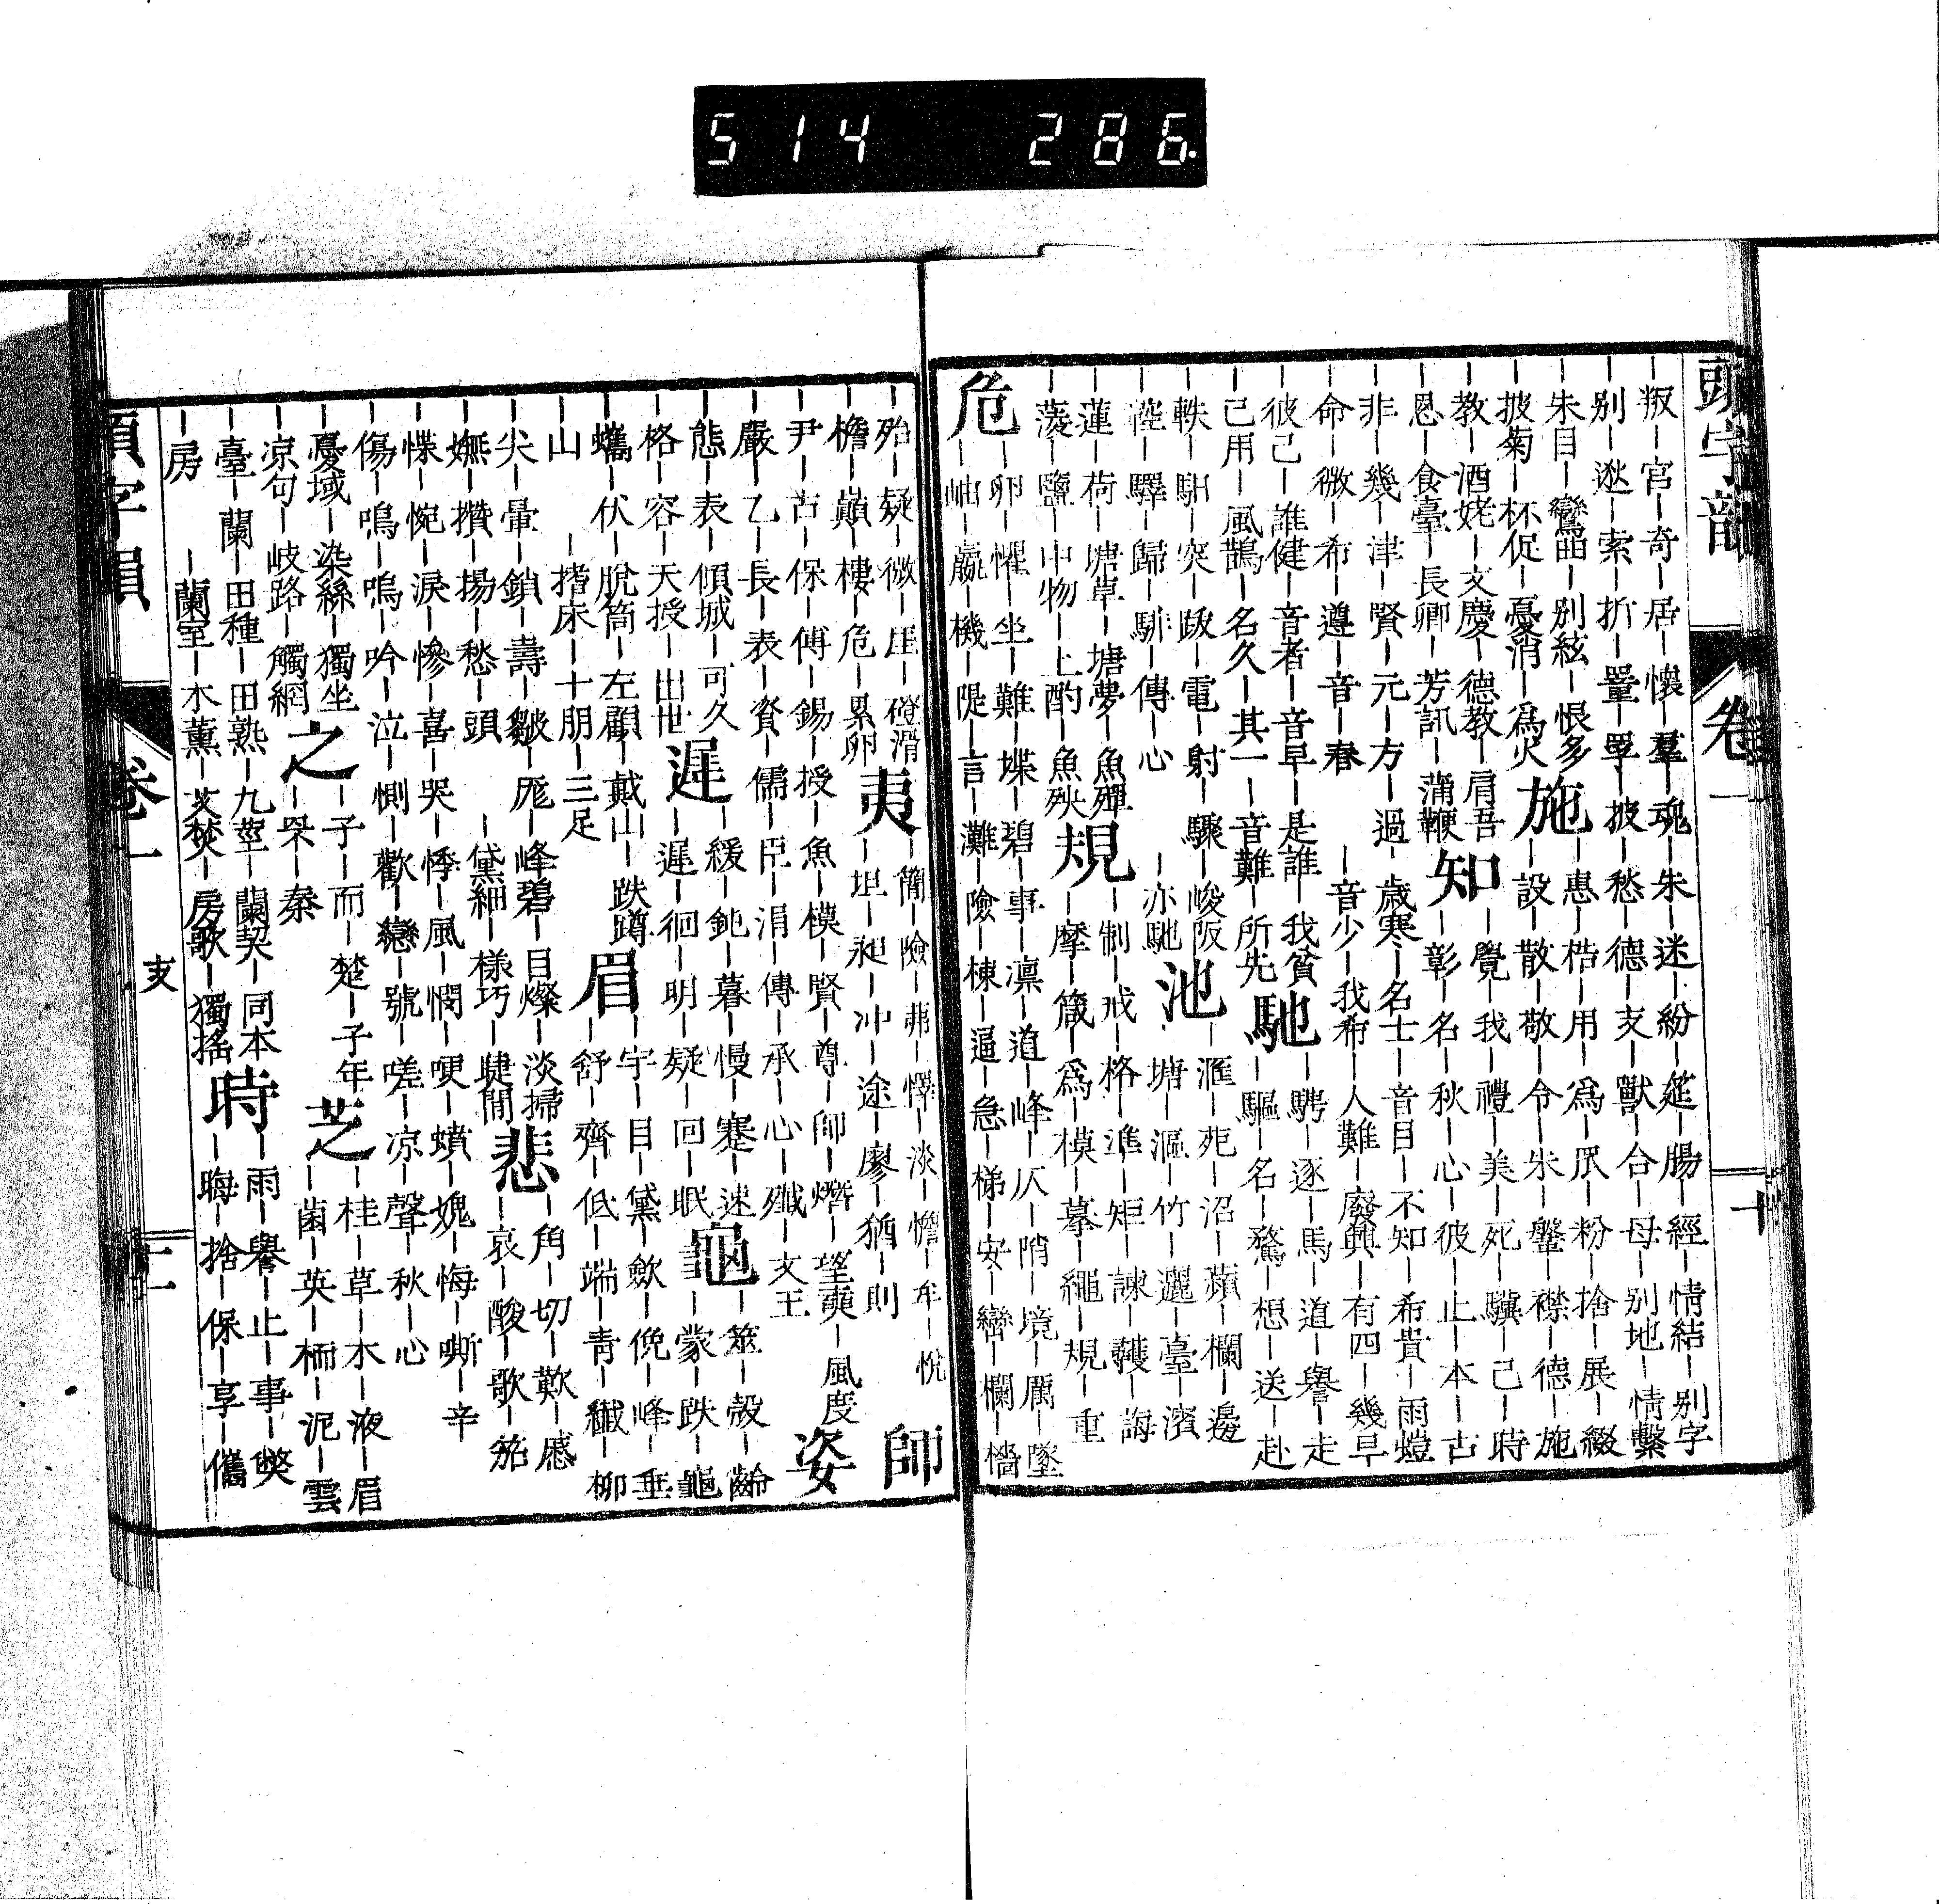 514 286.
頭字韻 卷一 十
叛｜宮｜奇｜居｜懷｜羣｜魂｜朱｜迷｜紛｜筵｜腸｜經｜情結｜別字
別｜逖｜索｜折｜單｜罪｜披｜愁｜德｜支｜獸｜合｜母｜別地｜情繫
朱目｜鸞曲｜別絃｜恨多 施｜惠｜梏｜用｜為｜夙｜粉｜捨｜展｜綴
披菊｜杯促｜憂消｜為火｜設｜散｜敬｜令｜朱｜鑿｜襟｜德｜施
教｜酒姥｜文慶｜德教｜肩吾 知｜覺｜我｜禮｜美｜死｜驥｜己｜時
恩｜食臺｜長卿｜芳訊｜蒲鞭｜彰｜名｜秋｜心｜彼｜止｜本｜古
非｜幾｜津｜賢｜元｜方｜過｜歲寒｜名士｜音目｜不知｜希貴｜雨螘
命｜微｜希｜遵｜音｜春｜音少｜我希｜人難｜廢興｜有四｜幾早
彼己｜誰健｜音者｜音早｜是誰｜我貧 馳｜騁｜逐｜馬｜道｜譽｜走
己用｜風鵲｜名久｜其一｜音難｜所先｜驅｜名｜騖｜想｜送｜赴
軼｜馹｜突｜跋｜電｜射｜驟｜峻阪 池｜滙｜苑｜沼｜蘋｜欄｜邊
陸｜驛｜歸｜騈｜傳｜心｜亦馳｜塘｜漚｜竹｜邐｜臺｜濱
蓮｜荷｜塘草｜塘夢｜魚殫 規｜制｜戒｜格｜準｜矩｜諫｜韄｜誨
菱｜鹽｜中物｜上酌｜魚殃｜摩｜箴｜為｜模｜摹｜繩｜規｜重
危｜卵｜懼｜坐｜難｜堞｜碧｜事｜凛｜道｜峰｜仄｜陗｜境｜厲｜墜
岫｜羸｜機｜隄｜言｜灘｜險｜棟｜逼｜急｜梯｜安｜巒｜欄｜檣
殆｜疑｜微｜厓｜磴滑 夷｜簡｜險｜弗｜懌｜淡｜憺｜牟｜悅 師
檐｜巔｜樓｜危｜累卵｜坦｜昶｜冲｜途｜廖｜猶｜則
尹｜古｜保｜傅｜錫｜授｜魚｜模｜賢｜尊｜帥｜熸｜望奭｜風度 姿
嚴｜乙｜長｜表｜資｜儒｜臣｜涓｜傳｜承｜心｜殲｜文王
態｜表｜傾城｜可久 遲｜緩｜鈍｜暮｜慢｜蹇｜迷 龜｜筮｜殼｜齡
格｜容｜天授｜出世｜遲｜徊｜明｜疑｜回｜眠｜蒙｜趺｜龜
蠵｜伏｜脫筒｜左顧｜戴山｜趺蹲 眉｜宇｜目｜黛｜斂｜俛｜峰｜垂
山｜搘床｜十朋｜三足｜舒｜齊｜低｜端｜青｜纖｜柳
尖｜暈｜鎖｜壽｜皺｜厖｜峰碧｜目燦｜淡掃 悲｜角｜切｜歎｜慼
嫵｜攢｜揚｜愁｜頭｜黛細｜樣巧｜睫間｜哀｜酸｜歌｜笳
惵｜惋｜淚｜慘｜喜｜哭｜悸｜風｜憫｜哽｜憤｜媿｜悔｜嘶｜辛
傷｜嗚｜嗚｜吟｜泣｜惻｜歡｜戀｜號｜嗟｜凉｜聲｜秋｜心
憂域｜染絲｜獨坐 之｜子｜而｜楚｜子年 芝｜桂｜草｜木｜液｜眉
凉句｜岐路｜觸網｜杲｜秦｜菌｜英｜栭｜泥｜雲
臺｜蘭｜田種｜田熟｜九莖｜蘭契｜同本 時｜雨｜譽｜止｜事｜弊
房｜蘭室｜木薰｜艾焚｜房歌｜獨搖｜晦｜捨｜保｜享｜儁
頭字韻 卷一 支 十一